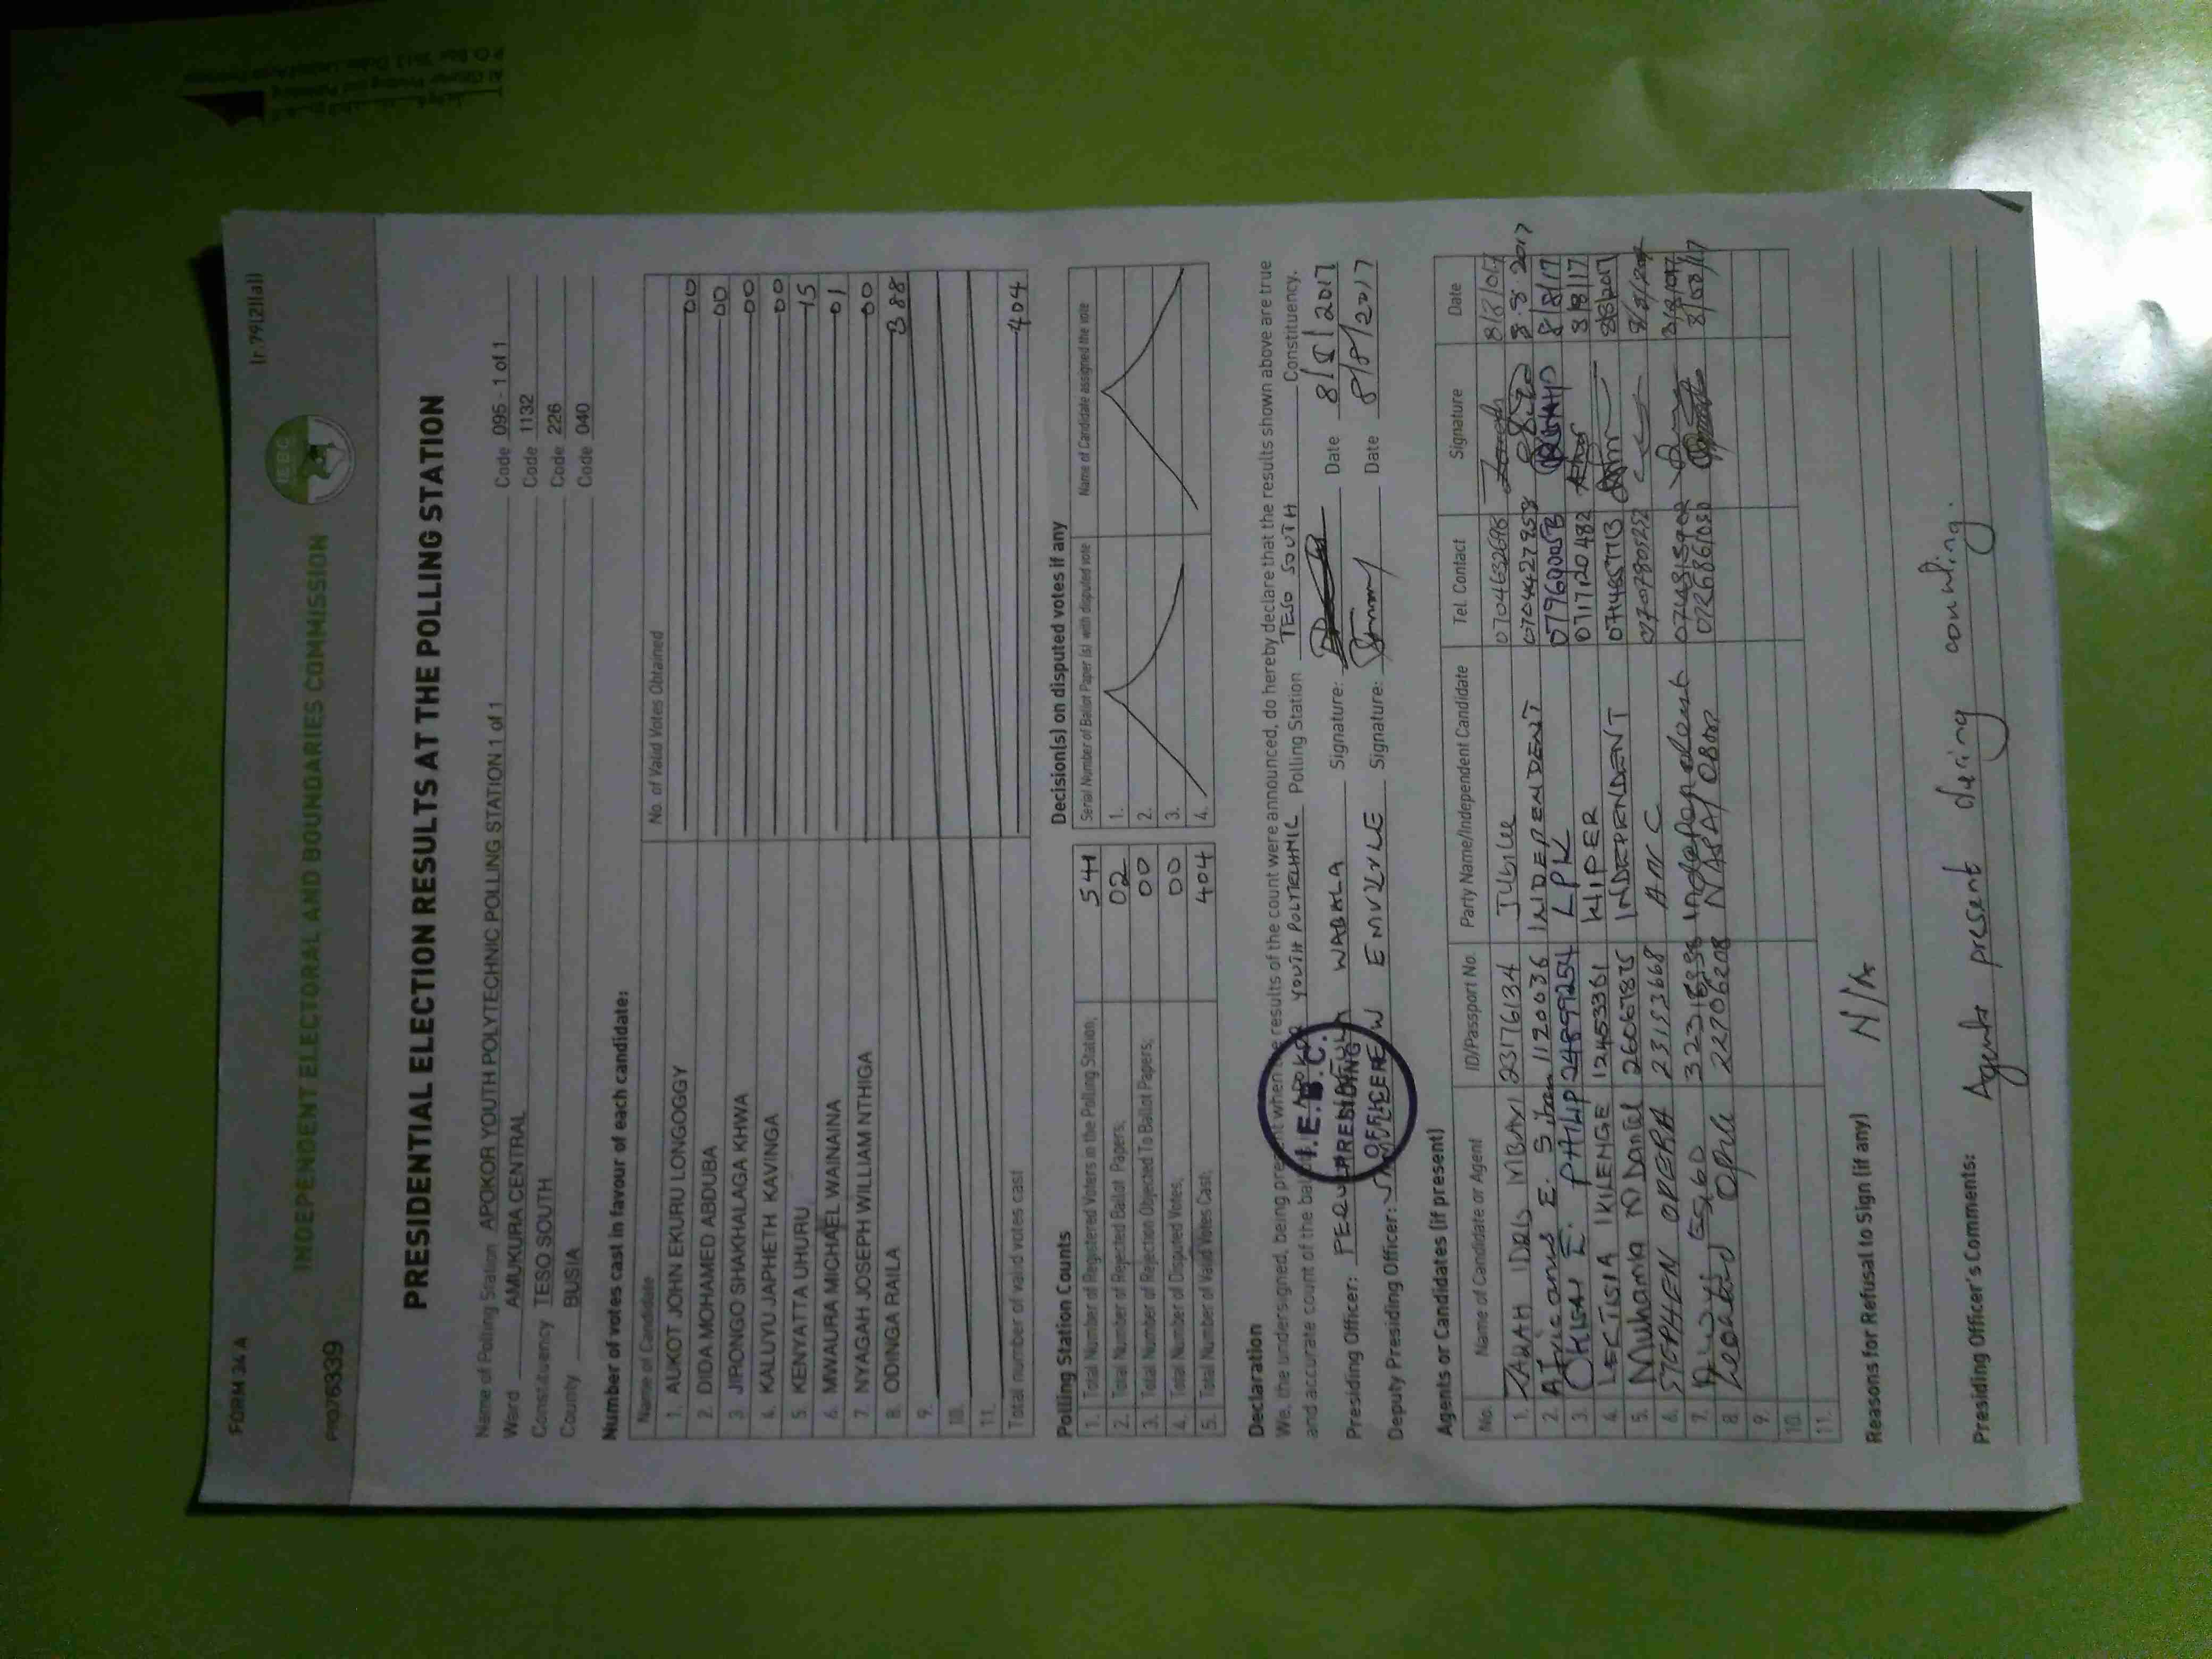 FORM 34 A
(r.79(2)(a))
IEBC
INDEPENDENT ELECTORAL AND BOUNDARIES COMMISSION
PRO76339
PRESIDENTIAL ELECTION RESULTS AT THE POLLING STATION
Name of Polling Station APOKOR YOUTH POLYTECHNIC POLLING STATION 1 of 1 Code 095 - 1 of 1
Ward AMUKURA CENTRAL Code 1132
Constituency TESO SOUTH Code 226
County BUSIA Code 040
Number of votes cast in favour of each candidate:
Name of Candidate No. of Valid Votes Obtained
1. AUKOT JOHN EKURU LONGOGGY 00
2. DIDA MOHAMED ABDUBA 00
3. JIRONGO SHAKHALAGA KHWA 00
4. KALUYU JAPHETH KAVINGA 00
5. KENYATTA UHURU 15
6. MWAURA MICHAEL WAINAINA 01
7. NYAGAH JOSEPH WILLIAM NTHIGA 00
8. ODINGA RAILA 388
9.
10.
11.
Total number of valid votes cast 404
Polling Station Counts
1. Total Number of Registered Voters in the Polling Station; 541
2. Total Number of Rejected Ballot Papers; 02
3. Total Number of Rejection Objected To Ballot Papers; 00
4. Total Number of Disputed Votes; 00
5. Total Number of Valid Votes Cast; 404
Decision(s) on disputed votes if any
Serial Number of Ballot Paper (s) with disputed vote Name of Candidate assigned the vote
1.
2.
3.
4.
Declaration
We, the undersigned, being present when the results of the count were announced, do hereby declare that the results shown above are true
and accurate count of the ballots YOUTH POLYTECHNIC Polling Station TESO SOUTH Constituency.
Presiding Officer: WABALA Signature: Date 8/8/2017
Deputy Presiding Officer: EMUKULE Signature: Date 8/8/2017
I.E.B.C.
PRESIDING
OFFICER
Agents or Candidates (if present)
No. Name of Candidate or Agent ID/Passport No. Party Name/Independent Candidate Tel. Contact Signature Date
1. IDRIS 23176134 Jubilee 0704632698 8/8/017
2. Africanus E. 11120036 INDEPENDENT 8.8.2017
3. E. PHILIP 24899254 LPK 8/8/17
4. LECTISIA IKILENGE 12453361 WIPER 0717120482 8/8/17
5. INDEPENDENT
6. STEPHEN OPERA 23153668 ANC 0707809252
7. Independent
8. Leonard 22706208 0726861080 8/08/17
9.
10.
11.
Reasons for Refusal to Sign (if any) N/A
Presiding Officer's Comments: Agents present during counting.